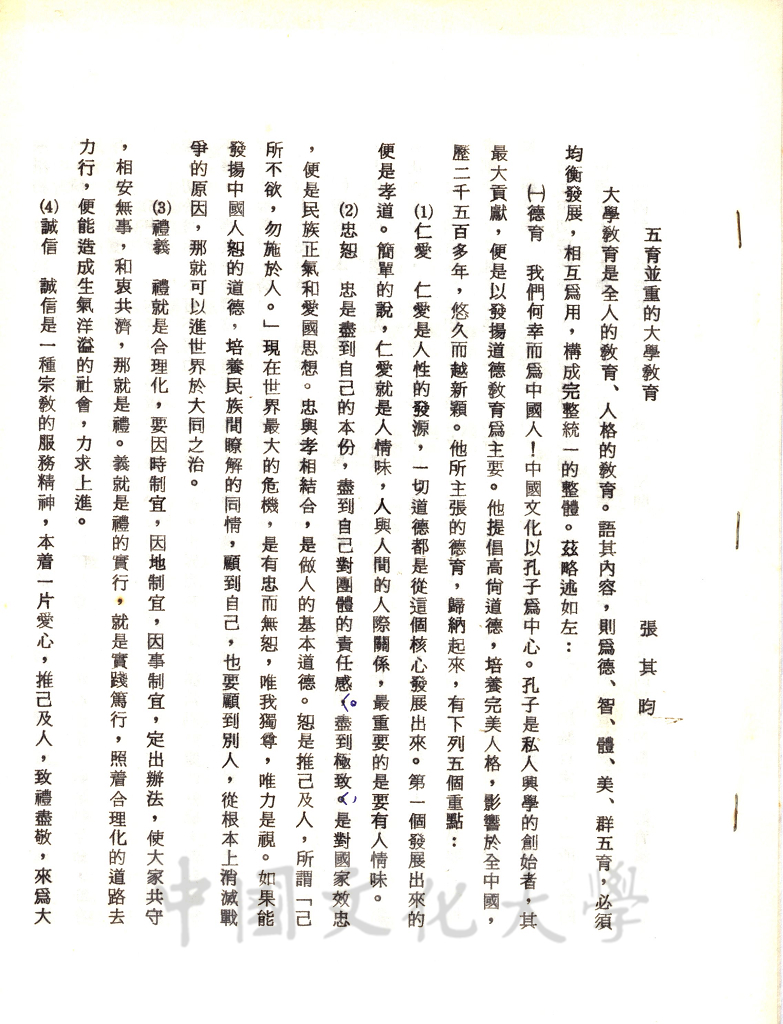 五育並重的大學教育
張其昀
大學教育是全人的教育、人格的教育。語其內容，則爲德、智、體、美、群五育，必須
均衡發展，相互爲用，構成完整統一的整體。茲略述如左：
㈠德育　我們何幸而爲中國人！中國文化以孔子爲中心。孔子是私人興學的創始者，其
最大貢獻，便是以發揚道德教育爲主要。他提倡高尙道德，培養完美人格，影響於全中國，
歷二千五百多年，悠久而越新穎。他所主張的德育，歸納起來，有下列五個重點：
⑴仁愛　仁愛是人性的發源，一切道德都是從這個核心發展出來。第一個發展出來的
便是孝道。簡單的說，仁愛就是人情味，人與人間的人際關係，最重要的是要有人情味。
⑵忠恕　忠是盡到自己的本份，盡到自己對團體的責任感。盡到極致，是對國家效忠
，便是民族正氣和愛國思想。忠與孝相結合，是做人的基本道德。恕是推己及人，所謂「己
所不欲，勿施於人。」現在世界最大的危機，是有忠而無恕，唯我獨尊，唯力是視。如果能
發揚中國人恕的道德，培養民族間瞭解的同情，顧到自己，也要顧到別人，從根本上消滅戰
爭的原因，那就可以進世界於大同之治。
⑶禮義　禮就是合理化，要因時制宜，因地制宜，因事制宜，定出辦法，使大家共守
，相安無事，和衷共濟，那就是禮。義就是禮的實行，就是實踐篤行，照着合理化的道路去
力行，便能造成生氣洋溢的社會，力求上進。
⑷誠信　誠信是一種宗教的服務精神，本着一片愛心，推己及人，致禮盡敬，來爲大
中國文化大學